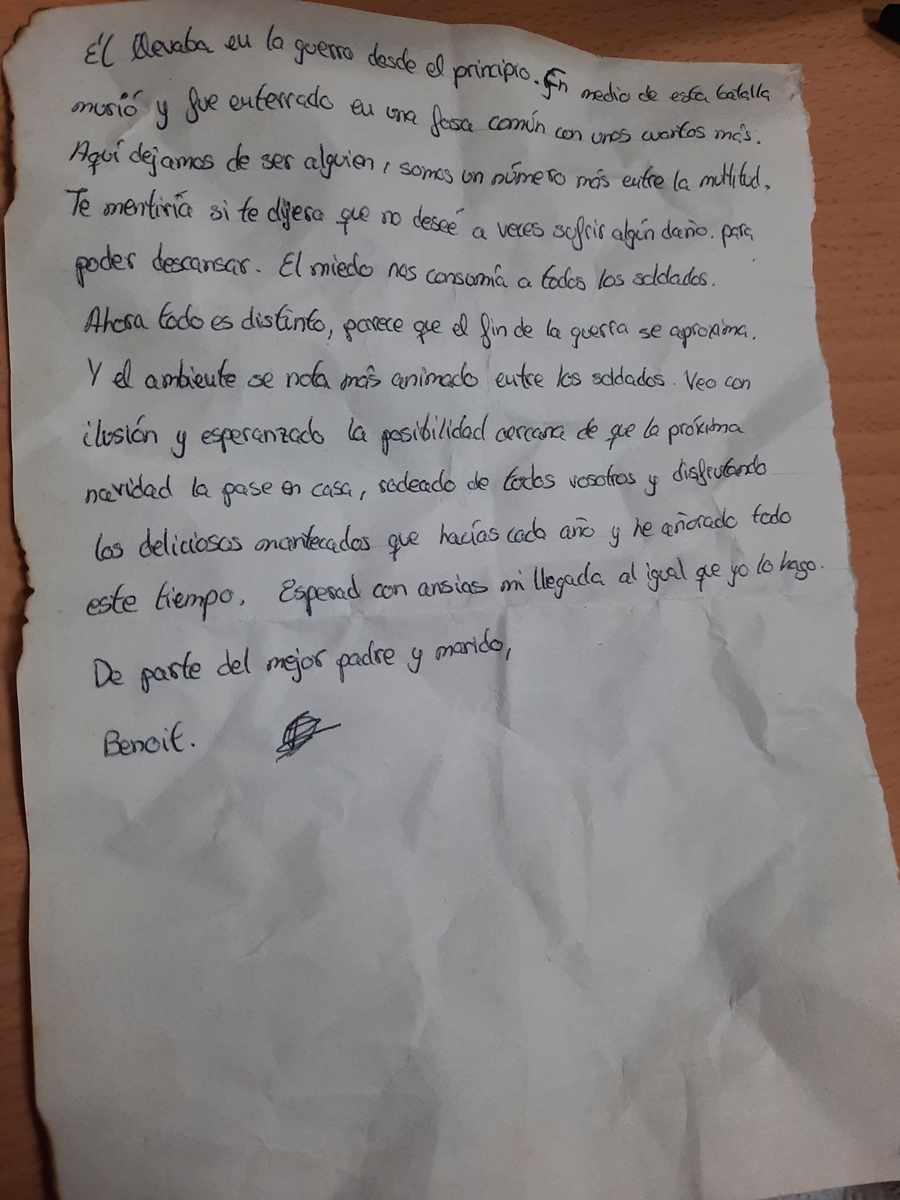 Él llevaba en la guerra desde el principio. En medio de esta batalla
murió y fue enterrado en una fosa común con unos cuantos más.
Aquí dejamos de ser alguien, somos un número más entre la multitud.
Te mentiría si te dijera que no deseé a veces sufrir algún daño. para
poder descansar. El miedo nos consomía a todos los soldados.
Ahora todo es distinto, parece que el fin de la guerra se aproxima.
Y el ambiente se nota más animado entre los soldados. Veo con
ilusión y esperanzado la posibilidad cercana de que la próxima
navidad la pase en casa, rodeado de todos vosotros y disfrutando
los deliciosos mantecados que hacías cada año y he añorado todo
este tiempo. Esperad con ansias mi llegada al igual que yo lo hago.
De parte del mejor padre y marido,
Benoit.